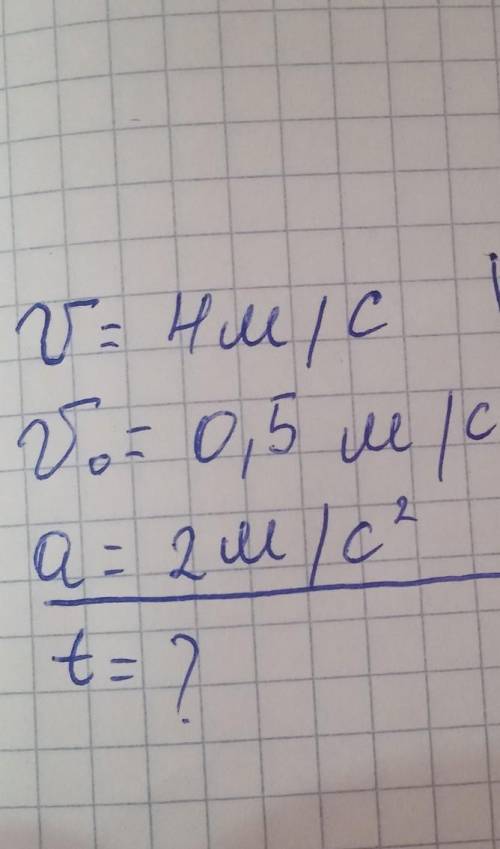 v = 4 м/с
v₀ = 0,5 м/с
a = 2 м/с²
t = ?